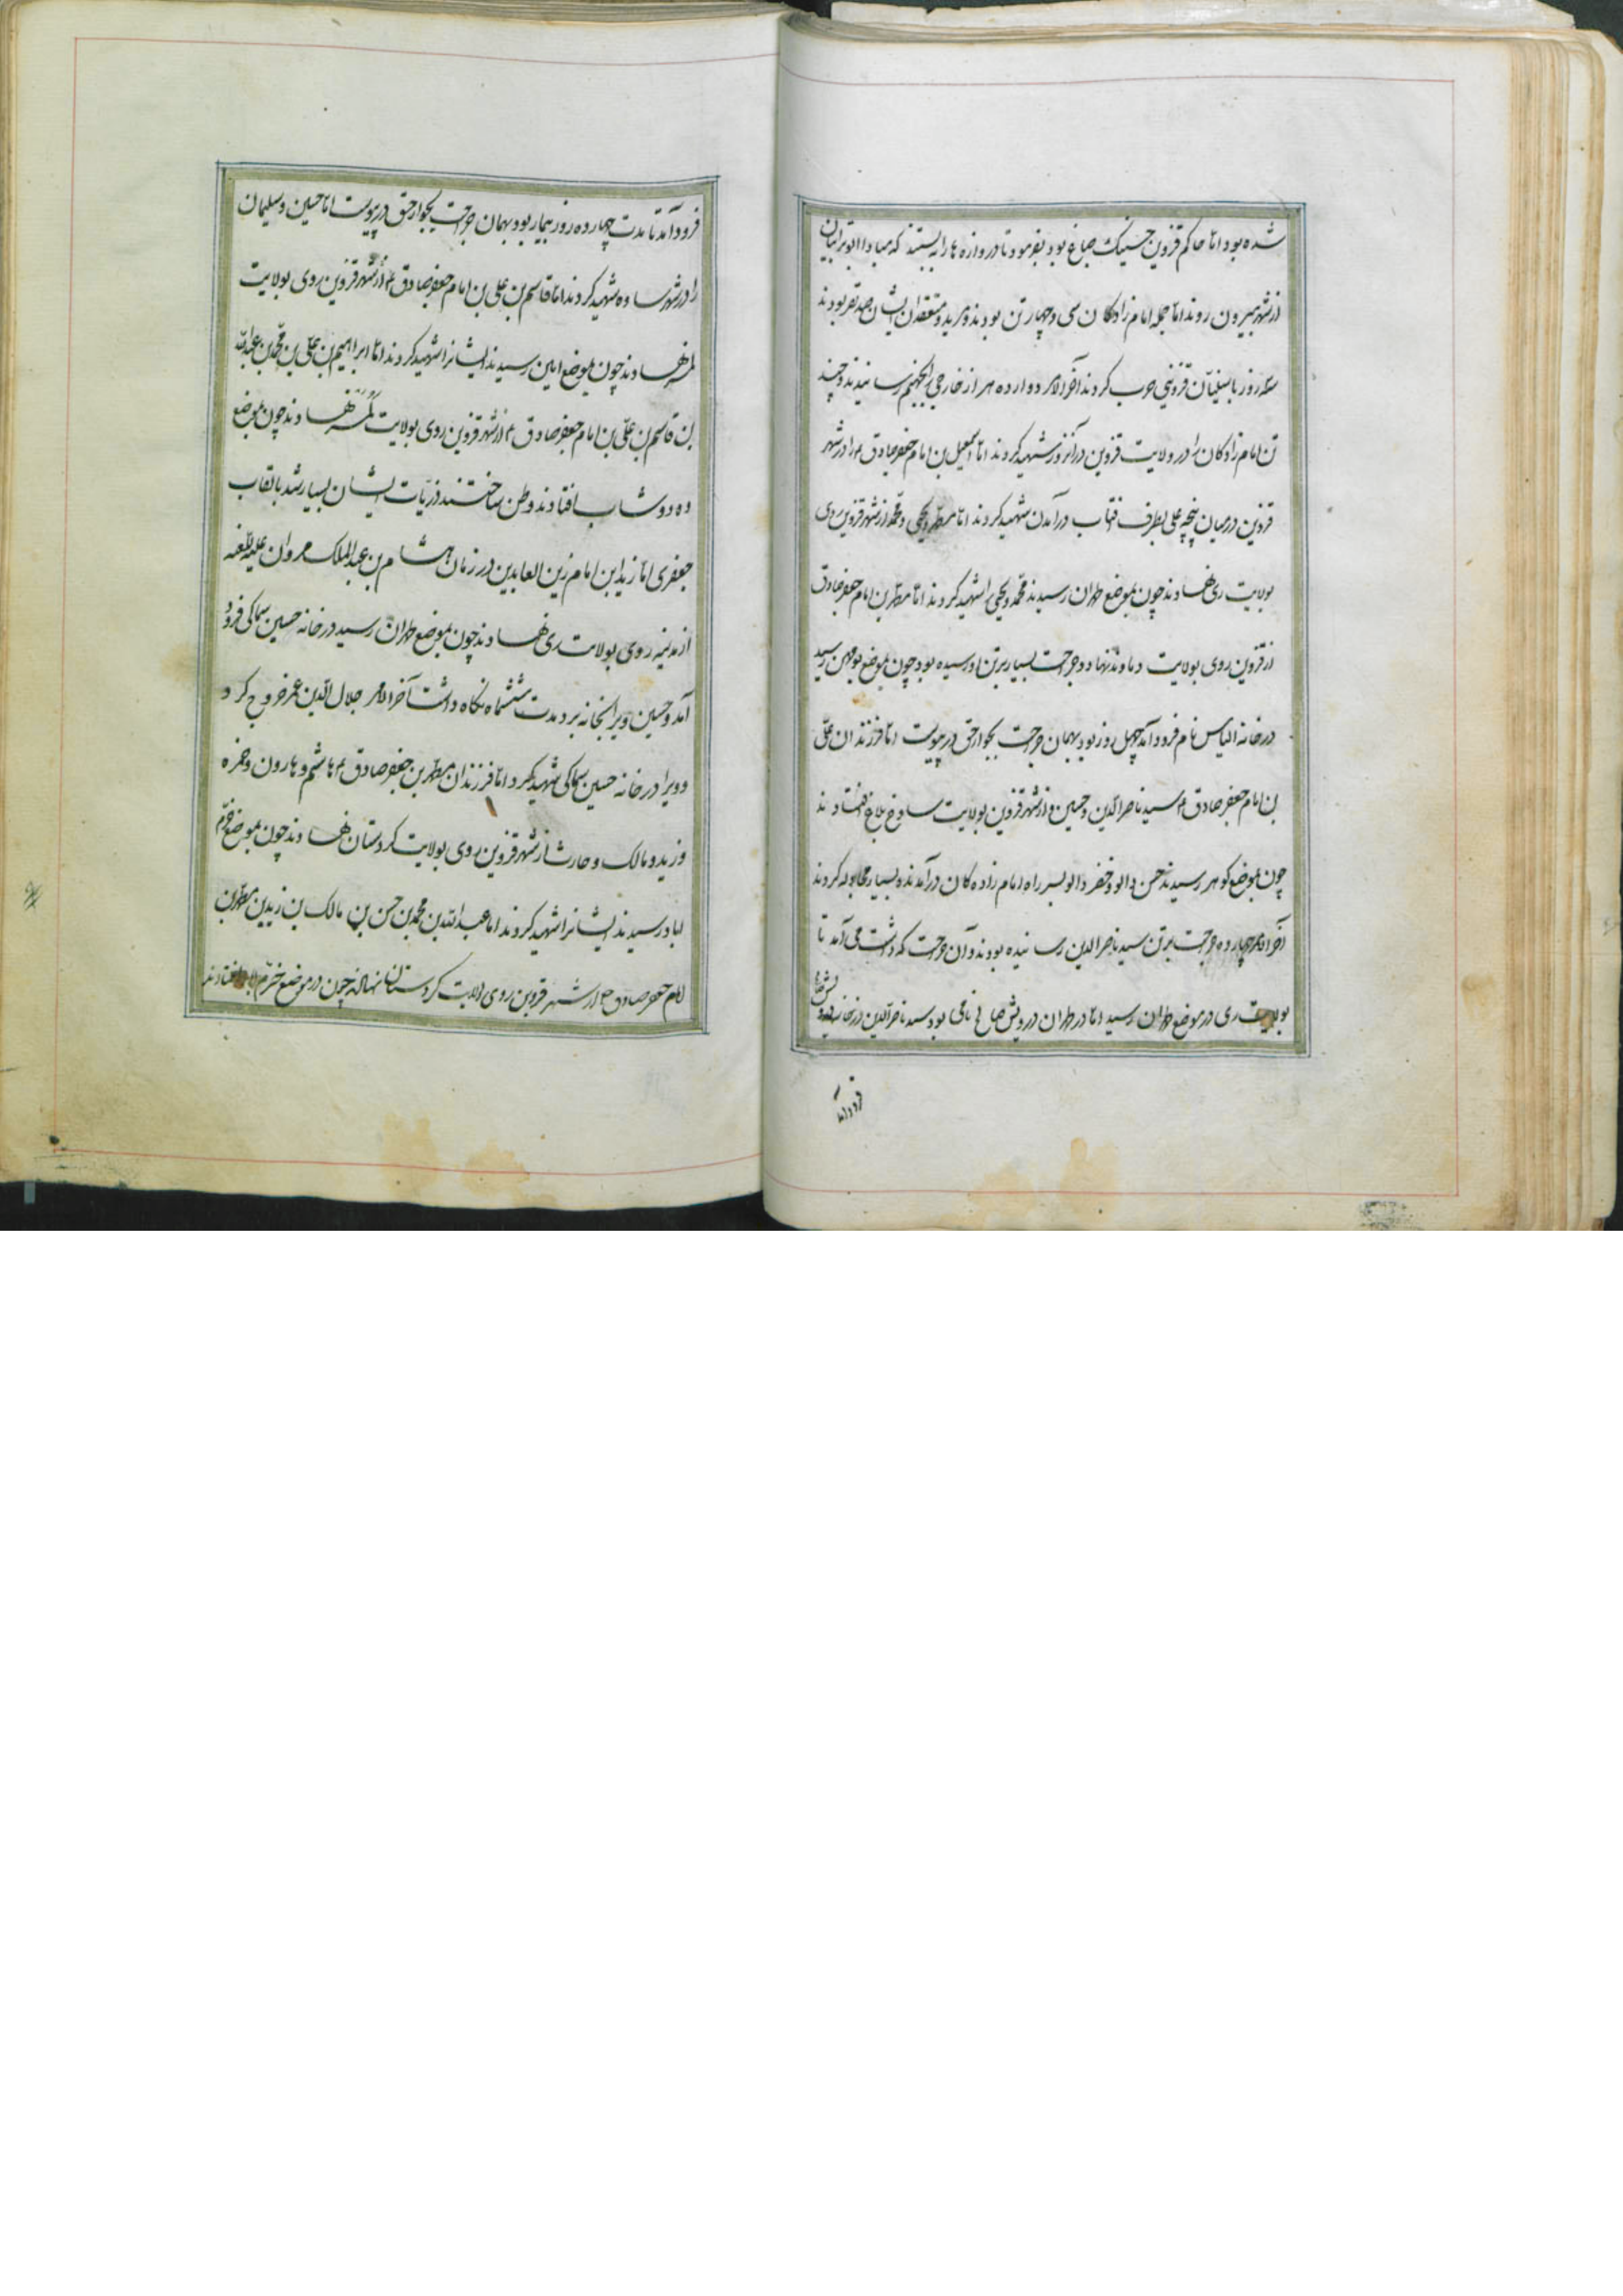 شده بود اما حاکم قزوین حسینک صباغ بود بفرمود تا دروازه ها را ببستند که مبادا ابوترابیان
از شهر بیرون روند اما جمله امام زادکان سی و چهار تن بودند و مرید و معتقدان ایشان صد نفر بودند
سه روز با سفیان قزوینی حرب کردند آخر الامر دوازده هزار خارجی را بجهنم رسانیدند و چند
تن امام زادکان را در ولایت قزوین در آنروز شهید کردند اما اسمعیل بن امام جعفر صادق ع را در شهر
قزوین در میان پنجه علی بطرف افتاب درآمدن شهید کردند اما مطهر و یحیی و محمد از شهر قزوین روی
بولایت ری نهادند چون بموضع طهران رسیدند محمد و یحیی را شهید کردند اما مطهر بن امام جعفر صادق
از قزوین روی بولایت دماوند نهاد و جراحت بسیار برتن او رسیده بود چون بموضع بومهن رسید
در خانه الیاس نام فرود آمد چهل روز بود بهمان جراحت بجوار حق در پیوست اما فرزندان علی
بن امام جعفر صادق ع سید ناصر الدین و حسین از شهر قزوین بولایت ساوخ بلاغ افتادند
چون بموضع کوهر رسیدند حسن دالو و خضر دالو بسر راه امام زاده کان درآمدند و بسیار مجادله کردند
آخر الامر چهارده جراحت برتن سید ناصر الدین رسانیده بودند و آن جراحت که داشت می آمد تا
بولایت ری در موضع طهران رسید اما در طهران درویش صافی نامی بود سید ناصر الدین در خانه درویش صافی
فرود آمد
فرود آمد تا مدت چهارده روز بیمار بود بهمان جراحت بجوار حق در پیوست اما حسین و سلیمان
را در شهر ساوه شهید کردند اما قاسم بن علی بن امام جعفر صادق ع از شهر قزوین روی بولایت
لمسر نهادند چون بموضع امین رسیدند ایشانرا شهید کردند اما ابراهیم بن علی بن محمد بن عبدالله
بن قاسم بن علی بن امام جعفر صادق ع از شهر قزوین روی بولایت لمسر نهادند چون بموضع
ده دوشاب افتادند وطن ساختند ذریات ایشان بسیار شد بالقاب
جعفری اما زید ابن امام زین العابدین در زمان هشام بن عبدالملک مروان علیه اللعنه
از مدینه روی بولایت ری نهادند چون بموضع طهران رسید در خانه حسین سماکی فرود
آمد و حسین ویرا بخانه برد مدت ششماه نگاه داشت آخر الامر جلال الدین عمر خروج کرد
و ویرا در خانه حسین سماکی شهید کرد اما فرزندان مطهر بن جعفر صادق ع هاشم و هارون و حمزه
و زید و مالک و حارث از شهر قزوین روی بولایت کردستان نهادند چون بموضع خرم
اباد رسیدند ایشانرا شهید کردند اما عبدالله بن محمد بن حسن بن مالک بن زید بن مطهر بن
امام جعفر صادق ع از شهر قزوین روی بولایت کردستان نهادند چون در موضع خرم اباد افتادند